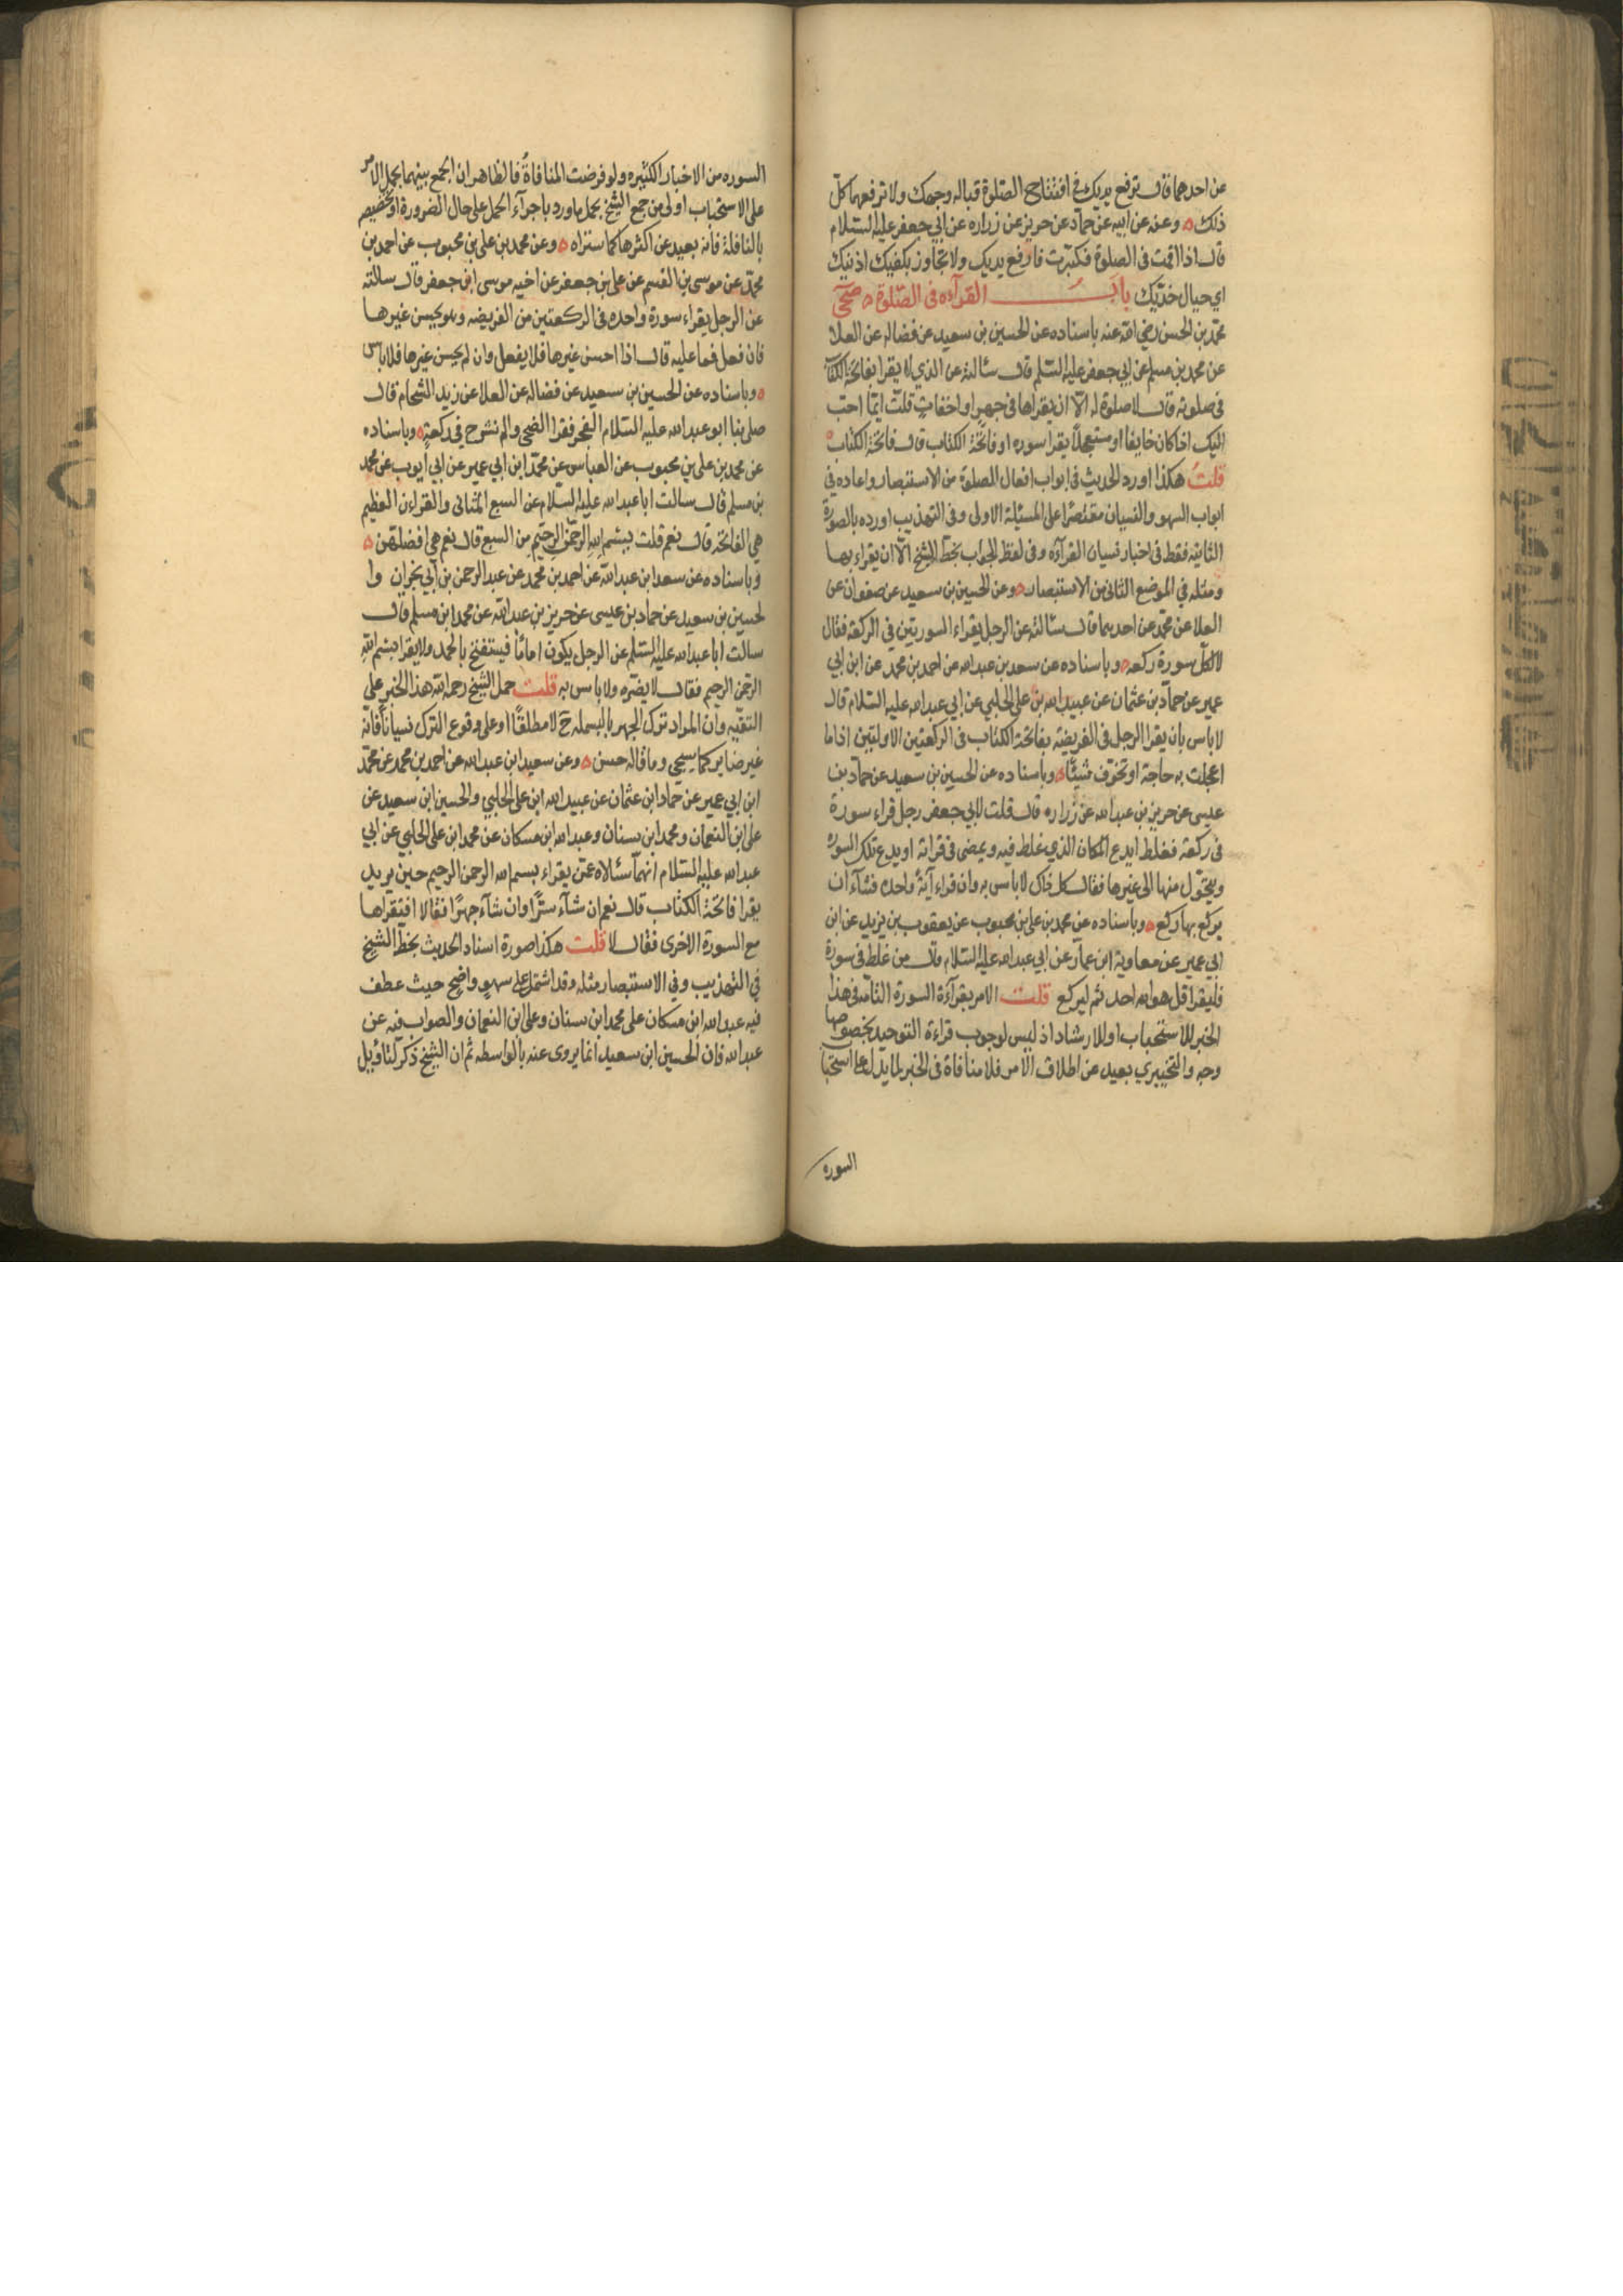 عن احدهما قال ترفع يديك في افتتاح الصلوة قباله وجهك ولا ترفعهما كل
ذلك ه وعنه عن ابيه عن حماد عن حريز عن زراره عن ابي جعفر عليه السلام
قال اذا قمت في الصلوة فكبرت فارفع يديك ولا تجاوز بكفيك اذنيك
اي حيال خديك باب القرآءه في الصلوة ه صحي
محمد بن الحسن رضي الله عنه باسناده عن الحسين بن سعيد عن فضاله عن العلا
عن محمد بن مسلم عن ابي جعفر عليه السلم قال سئالته عن الذي لا يقرا بفاتحة الكتاب
في صلوته قال لا صلوة له الّا ان يقراها في جهر او اخفات قلت ايما احب
اليك اذا كان خايفا او مستعجلاً يقرا سوره او فاتحة الكتاب قال فاتحة الكتاب ه
قلت هكذا اورد الحديث في ابواب افعال الصلوة من الاستبصار واعاده في
ابواب السهو والنسيان مقتصرا على المسئلة الاولى وفي التهذيب اورده بالصورة
الثانيه فقط في اخبار نسيان القرآءه وفي لفظ الجواب بخط الشيخ الّا ان يقراء بها
ومثله في الموضع الثاني من الاستبصار ه وعن الحسين بن سعيد عن صفوان عن
العلا عن محمد عن احدهما قال سئالته عن الرجل يقراء السورتين في الركعه فقال
لا لكل سورة ركعه ه وباسناده عن سعد بن عبد الله عن احمد بن محمد عن ابن ابي
عمير عن حماد بن عثمان عن عبيد الله بن علي الحلبي عن ابي عبد الله عليه السلام قال
لا باس بان يقرا الرجل في الفريضه بفاتحة الكتاب في الركعتين الاوليتين اذا ما
اعجلت به حاجة او تخوف شيئًا ه وباسناده عن الحسين بن سعيد عن حماد بن
عيسى عن حريز بن عبد الله عن زراره قال قلت لابي جعفر رجل قراء سورة
في ركعة فغلط ايدع المكان الذي غلط فيه ويمضى في قرائه او يدع تلك السوره
ويتحول منها الى غيرها فقال كل ذلك لا باس به وان قراء آية واحده فشآء ان
يركع بها ركع ه وباسناده عن محمد بن علي بن محبوب عن يعقوب بن يزيد عن ابن
ابي عمير عن معاوية ابن عمار عن ابي عبد الله عليه السلام قال من غلط في سورة
فليقرا قل هو الله احد ثم ليركع قلت الامر بقرآءة السورة التامه في هذا
الخبر للاستحباب او للارشاد اذ ليس لوجوب قراءة التوحيد بخصوصها
وجه والتخييري بعيد عن اطلاق الامر فلا منافاة في الخبر لما يدل على استحبا
السوره
السوره من الاخبار الكثيره ولو فرضت المنافاةُ فالظاهر ان الجمع بينهما بحمل الامر
على الاستحباب اولى من جمع الشيخ بحمل ما ورد باجزآء الحمد على حال الضرورة او تخصيصه
بالنافلة فانه بعيد عن اكثرها كما ستراه ه وعن محمد بن علي بن محبوب عن احمد بن
محمد عن موسى بن القسم عن علي بن جعفر عن اخيه موسى ابن جعفر قال سالته
عن الرجل يقراء سورة واحده في الركعتين من الفريضه وهو يحسن غيرها
فان فعل فما عليه قال اذا احسن غيرها فلا يفعل وان لم يحسن غيرها فلا باس
ه وباسناده عن الحسين بن سعيد عن فضاله عن العلا عن زيد الشحام قال
صلى بنا ابو عبد الله عليه السلام الفجر فقرا الضحى والم نشرح في ركعة ه وباسناده
عن محمد بن علي بن محبوب عن العباس عن محمد ابن ابي عمير عن ابي ايوب عن محمد
بن مسلم قال سالت ابا عبد الله عليه السلام عن السبع المثاني والقراءن العظيم
هي الفاتحه قال نعم قلت بسم الله الرحمن الرحيم من السبع قال نعم هي افضلهن ه
وباسناده عن سعد ابن عبد الله عن احمد بن محمد عن عبد الرحمن بن ابي نجران وا
لحسين بن سعيد عن حماد بن عيسى عن حريز بن عبد الله عن محمد ابن مسلم قال
سالت ابا عبد الله عليه السلم عن الرجل يكون امامًا فيستفتح بالحمد ولا يقرا بسم الله
الرحمن الرحيم فقال لا يضره ولا باس به قلت حمل الشيخ رحمه الله هذا الخبر على
التقيه وان المراد ترك الجهر بالبسمله ح لا مطلقًا او على وقوع الترك نسيانًا فانه
غير ضاير كما سيجي وما قاله حسن ه وعن سعيد ابن عبد الله عن احمد بن محمد عن محمد
ابن ابي عمير عن حماد ابن عثمان عن عبيد الله ابن علي الحلبي والحسين ابن سعيد عن
علي ابن النعمان ومحمد ابن سنان وعبد الله ابن مسكان عن محمد ابن علي الحلبي عن ابي
عبد الله عليه السلام انهما سئالاه عمن يقراء بسم الله الرحمن الرحيم حين يريد
يقرا فاتحة الكتاب قال نعم ان شآء سرًا وان شآء جهرًا فقالا افيقراها
مع السورة الاخرى فقال لا قلت هكذا صورة اسناد الحديث بخط الشيخ
في التهذيب وفي الاستبصار مثله وقد اشتمل على سهو واضح حيث عطف
فيه عبد الله ابن مسكان على محمد ابن سنان وعلي ابن النعمان والصواب فيه عن
عبد الله فان الحسين ابن سعيد انما يروى عنه بالواسطه ثم ان الشيخ ذكر لتاويل